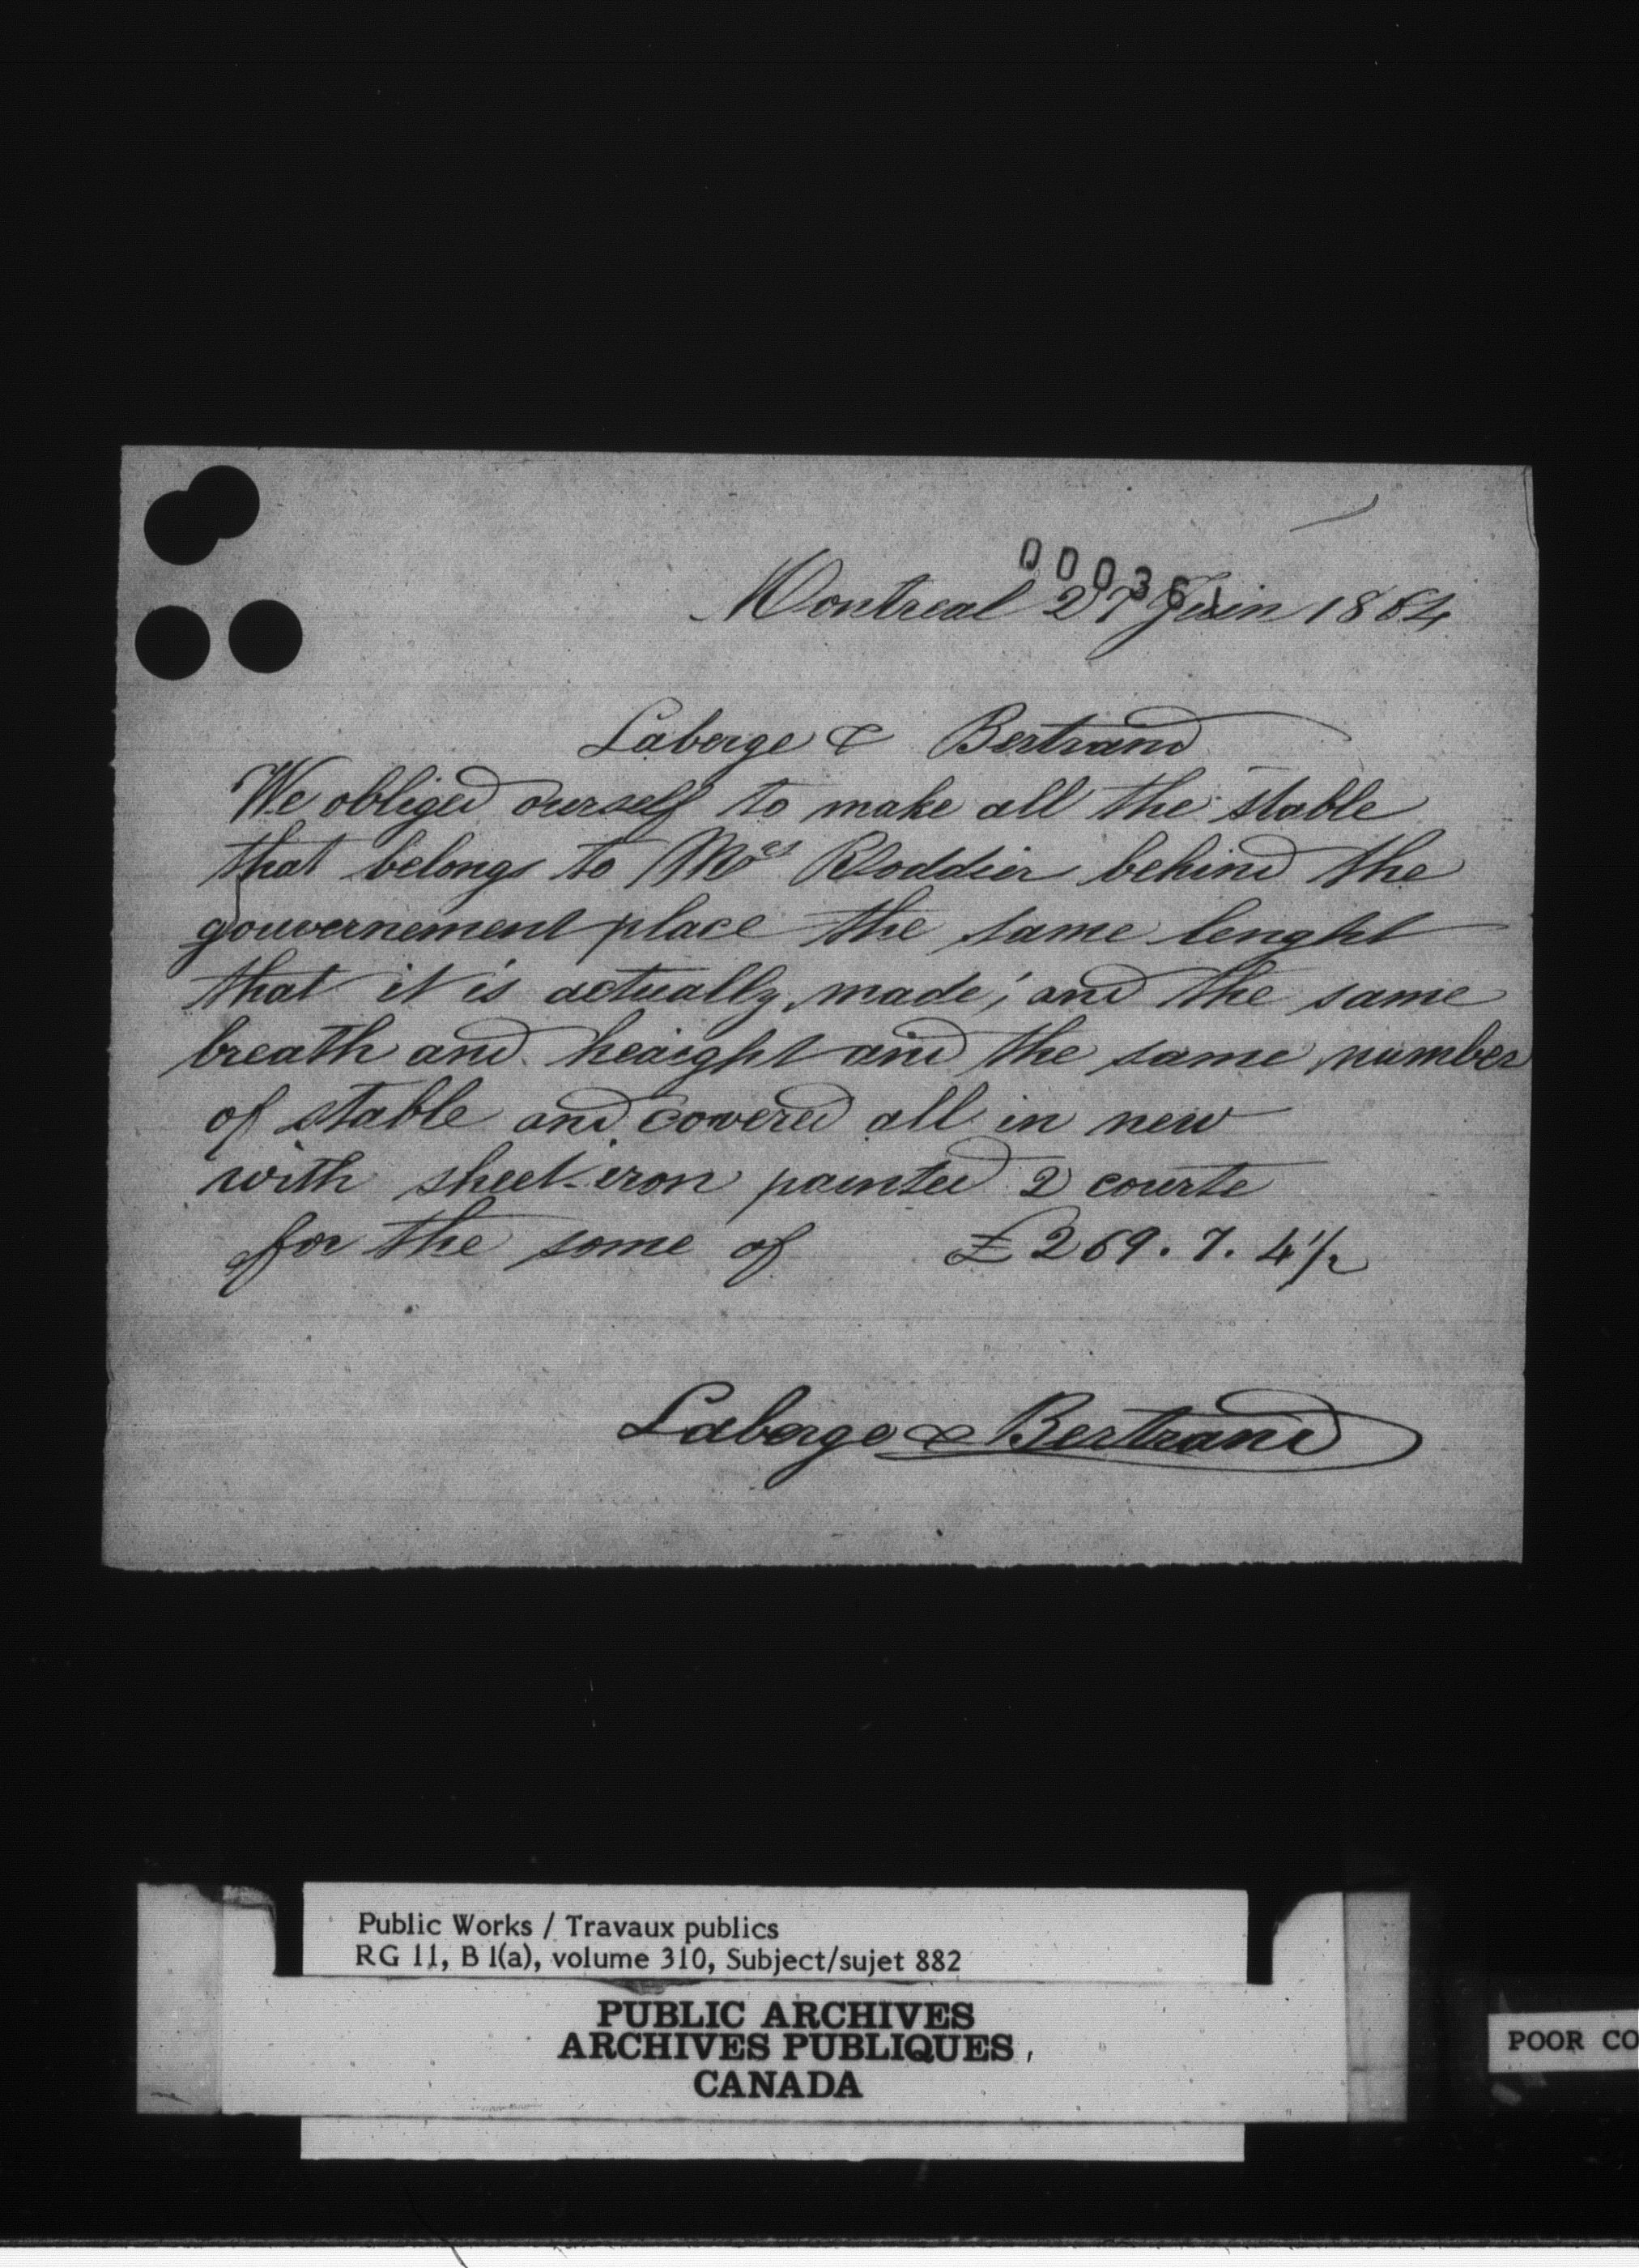 000361
Montreal 27 Juin 1864
Laberge & Bertrand
We obliged ourself to make all the stable
that belongs to Mrs Roddier behind the
gouvernement place the same lenght
that it is actually made, and the same
breath and heaight and the same number
of stable and covered all in new
with sheet-iron painted 2 courte
for the some of £269.7.4 1/2
Laberge & Bertrand
Public Works / Travaux publics
RG 11, B 1(a), volume 310, Subject/sujet 882
PUBLIC ARCHIVES
ARCHIVES PUBLIQUES
CANADA
POOR CO